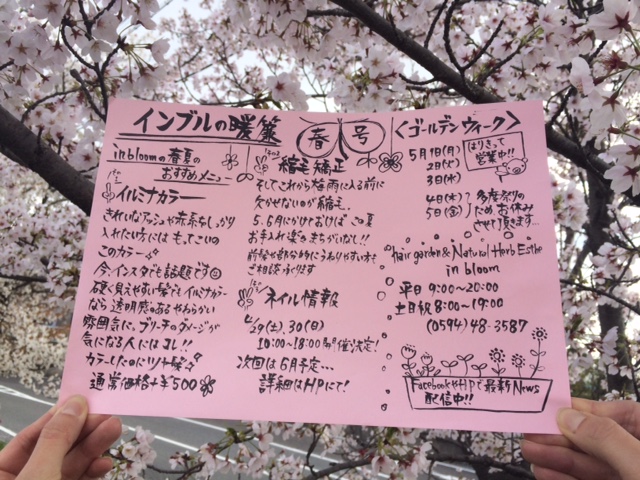 インブルの暖簾
春号
in bloomの春夏の
おすすめメニュー
イルミナカラー
きれいなアッシュや赤系をしっかり
入れたい方には もってこいの
このカラー
今、インスタでも話題です
硬く見えやすい髪でもイルミナカラー
なら 透明感のあるやわらかい
雰囲気に。ブリーチのダメージが
気になる人には コレ!!
カラーしたのにツヤ髪
通常価格+¥500
縮毛矯正
そしてこれから梅雨に入る前に
欠かせないのが縮毛。
5.6月にかけておけば この夏
お手入れ楽ちまちがいなし!!
前髪や部分的にうねりやすい方も
ご相談ください
ネイル情報
4/29(土).30(日)
10:00~18:00 開催決定!
次回は 6月予定...
詳細はHPにて!
<ゴールデンウィーク>
5月1日(月)
2日(火)
3日(水)
はりきって
営業中!!
4日(木)
5日(金)
多度祭りの
ため お休み
させて頂きます...
hair garden & Natural Herb Esthe
in bloom
平日 9:00~20:00
土日祝 8:00~19:00
(0594) 48-3587
FacebookやHPで最新News
配信中!!